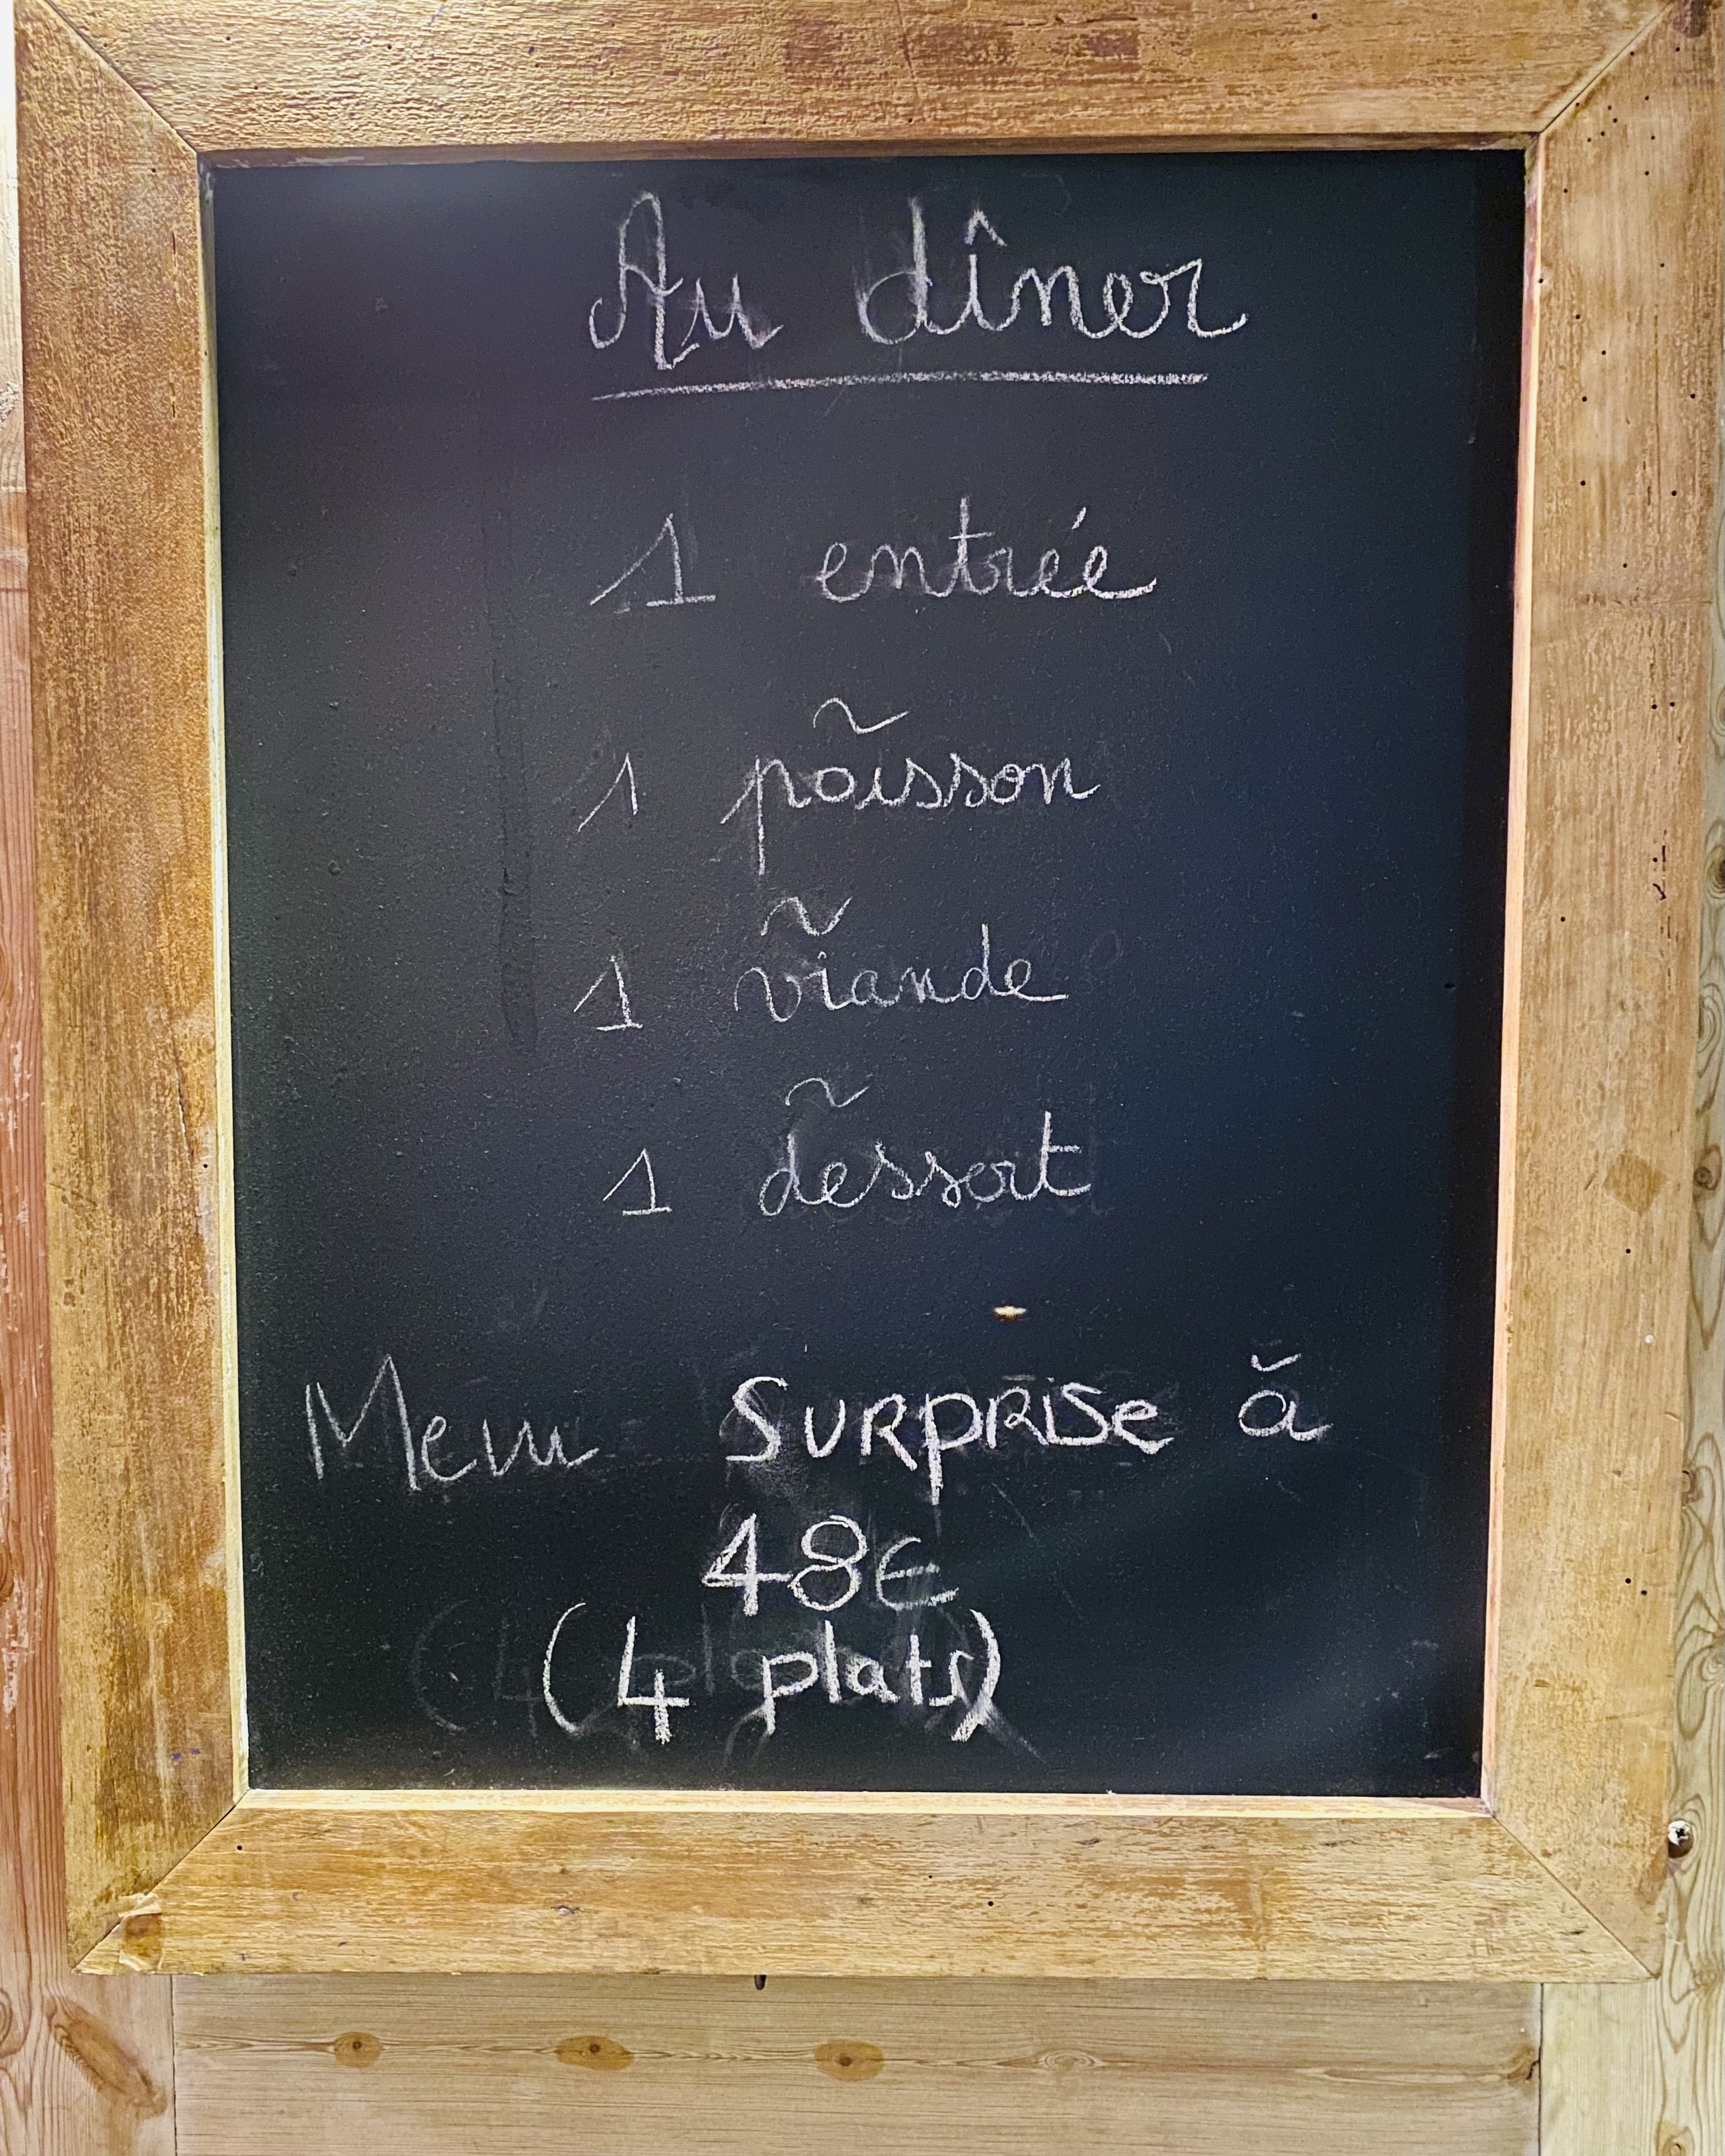 Au dîner
1 entrée
~
1 poisson
~
1 viande
~
1 dessert
Menu SURPRISE à
48€
(4 plats)